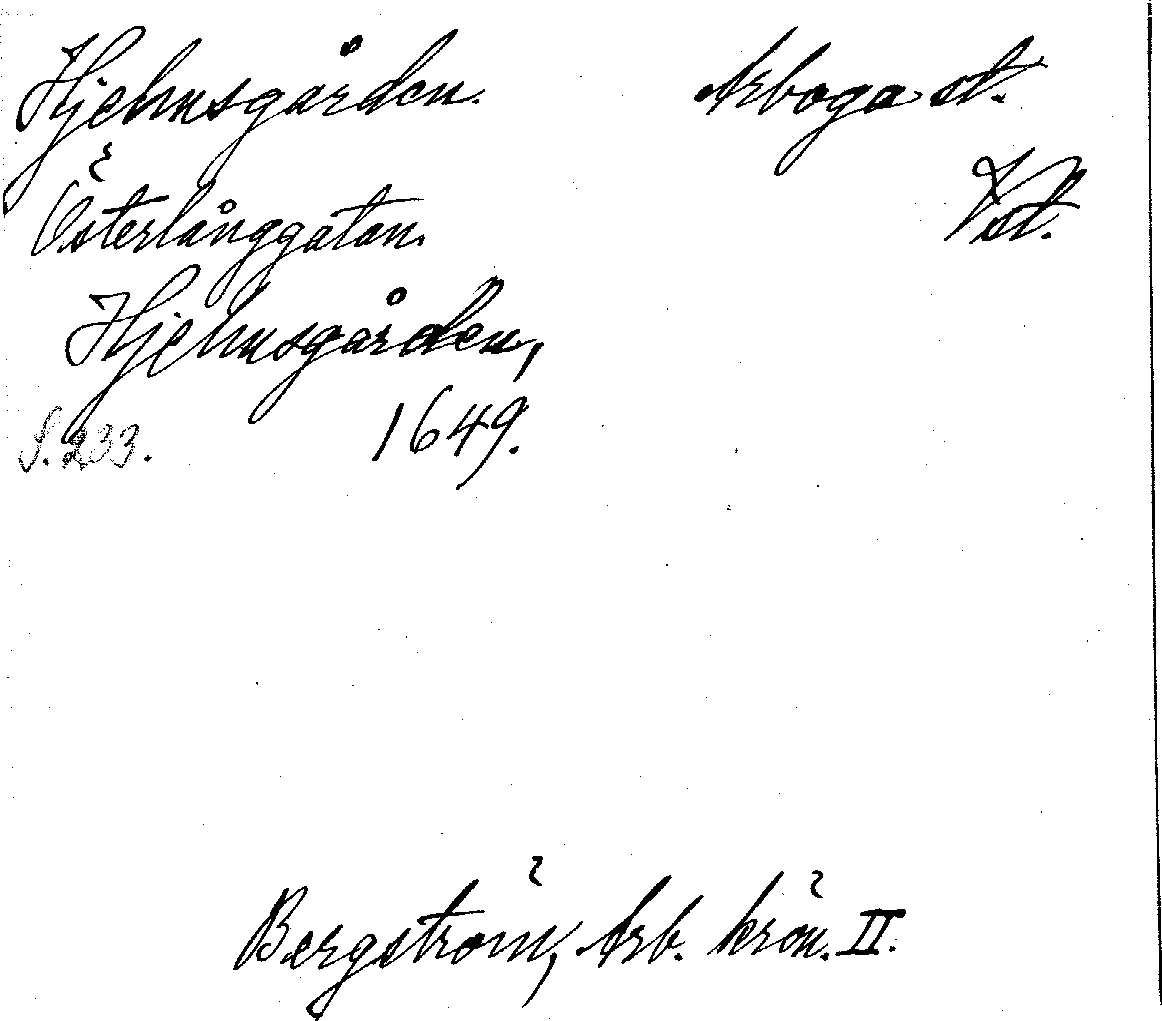 Hjelmsgården. Arboga st.
Österlånggatan. Vst.
Hjelmsgården,
S. 233. 1649.
Bergström, Arb. krön. II.